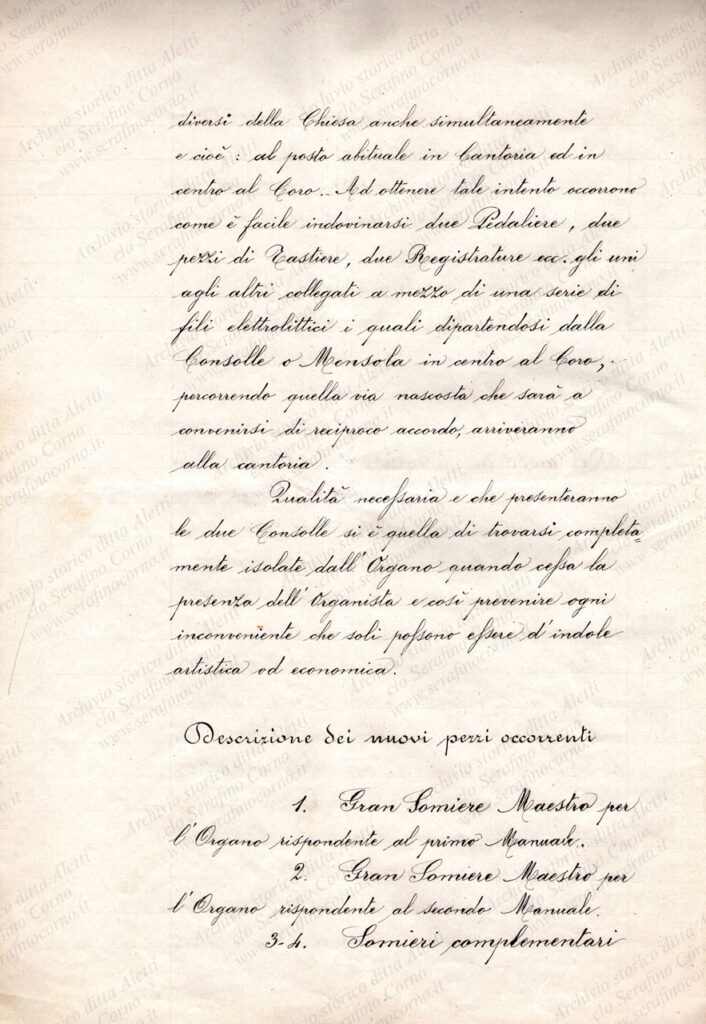 diversi della Chiesa anche simultaneamente
e cioè : al posto abituale in Cantoria ed in
centro al Coro.. Ad ottenere tale intento occorrono
come è facile indovinarsi due Pedaliere, due
pezzi di Tastiere, due Registrature ecc. gli uni
agli altri collegati a mezzo di una serie di
fili elettrolittici i quali dipartendosi dalla
Consolle o Mensola in centro al Coro,
percorrendo quella via nascosta che sarà a
convenirsi di reciproco accordo, arriveranno
alla cantoria.
Qualità necessaria e che presenteranno
le due Consolle si è quella di trovarsi completa=
mente isolate dall'Organo quando cessa la
presenza dell'Organista e così prevenire ogni
inconveniente che soli possono essere d'indole
artistica od economica.
Descrizione dei nuovi pezzi occorrenti
1. Gran Somiere Maestro per
l'Organo rispondente al primo Manuale.
2. Gran Somiere Maestro per
l'Organo rispondente al secondo Manuale.
3-4. Somieri complementari
Archivio storico ditta Aletti
c/o Serafino Corno
www.serafinocorno.it